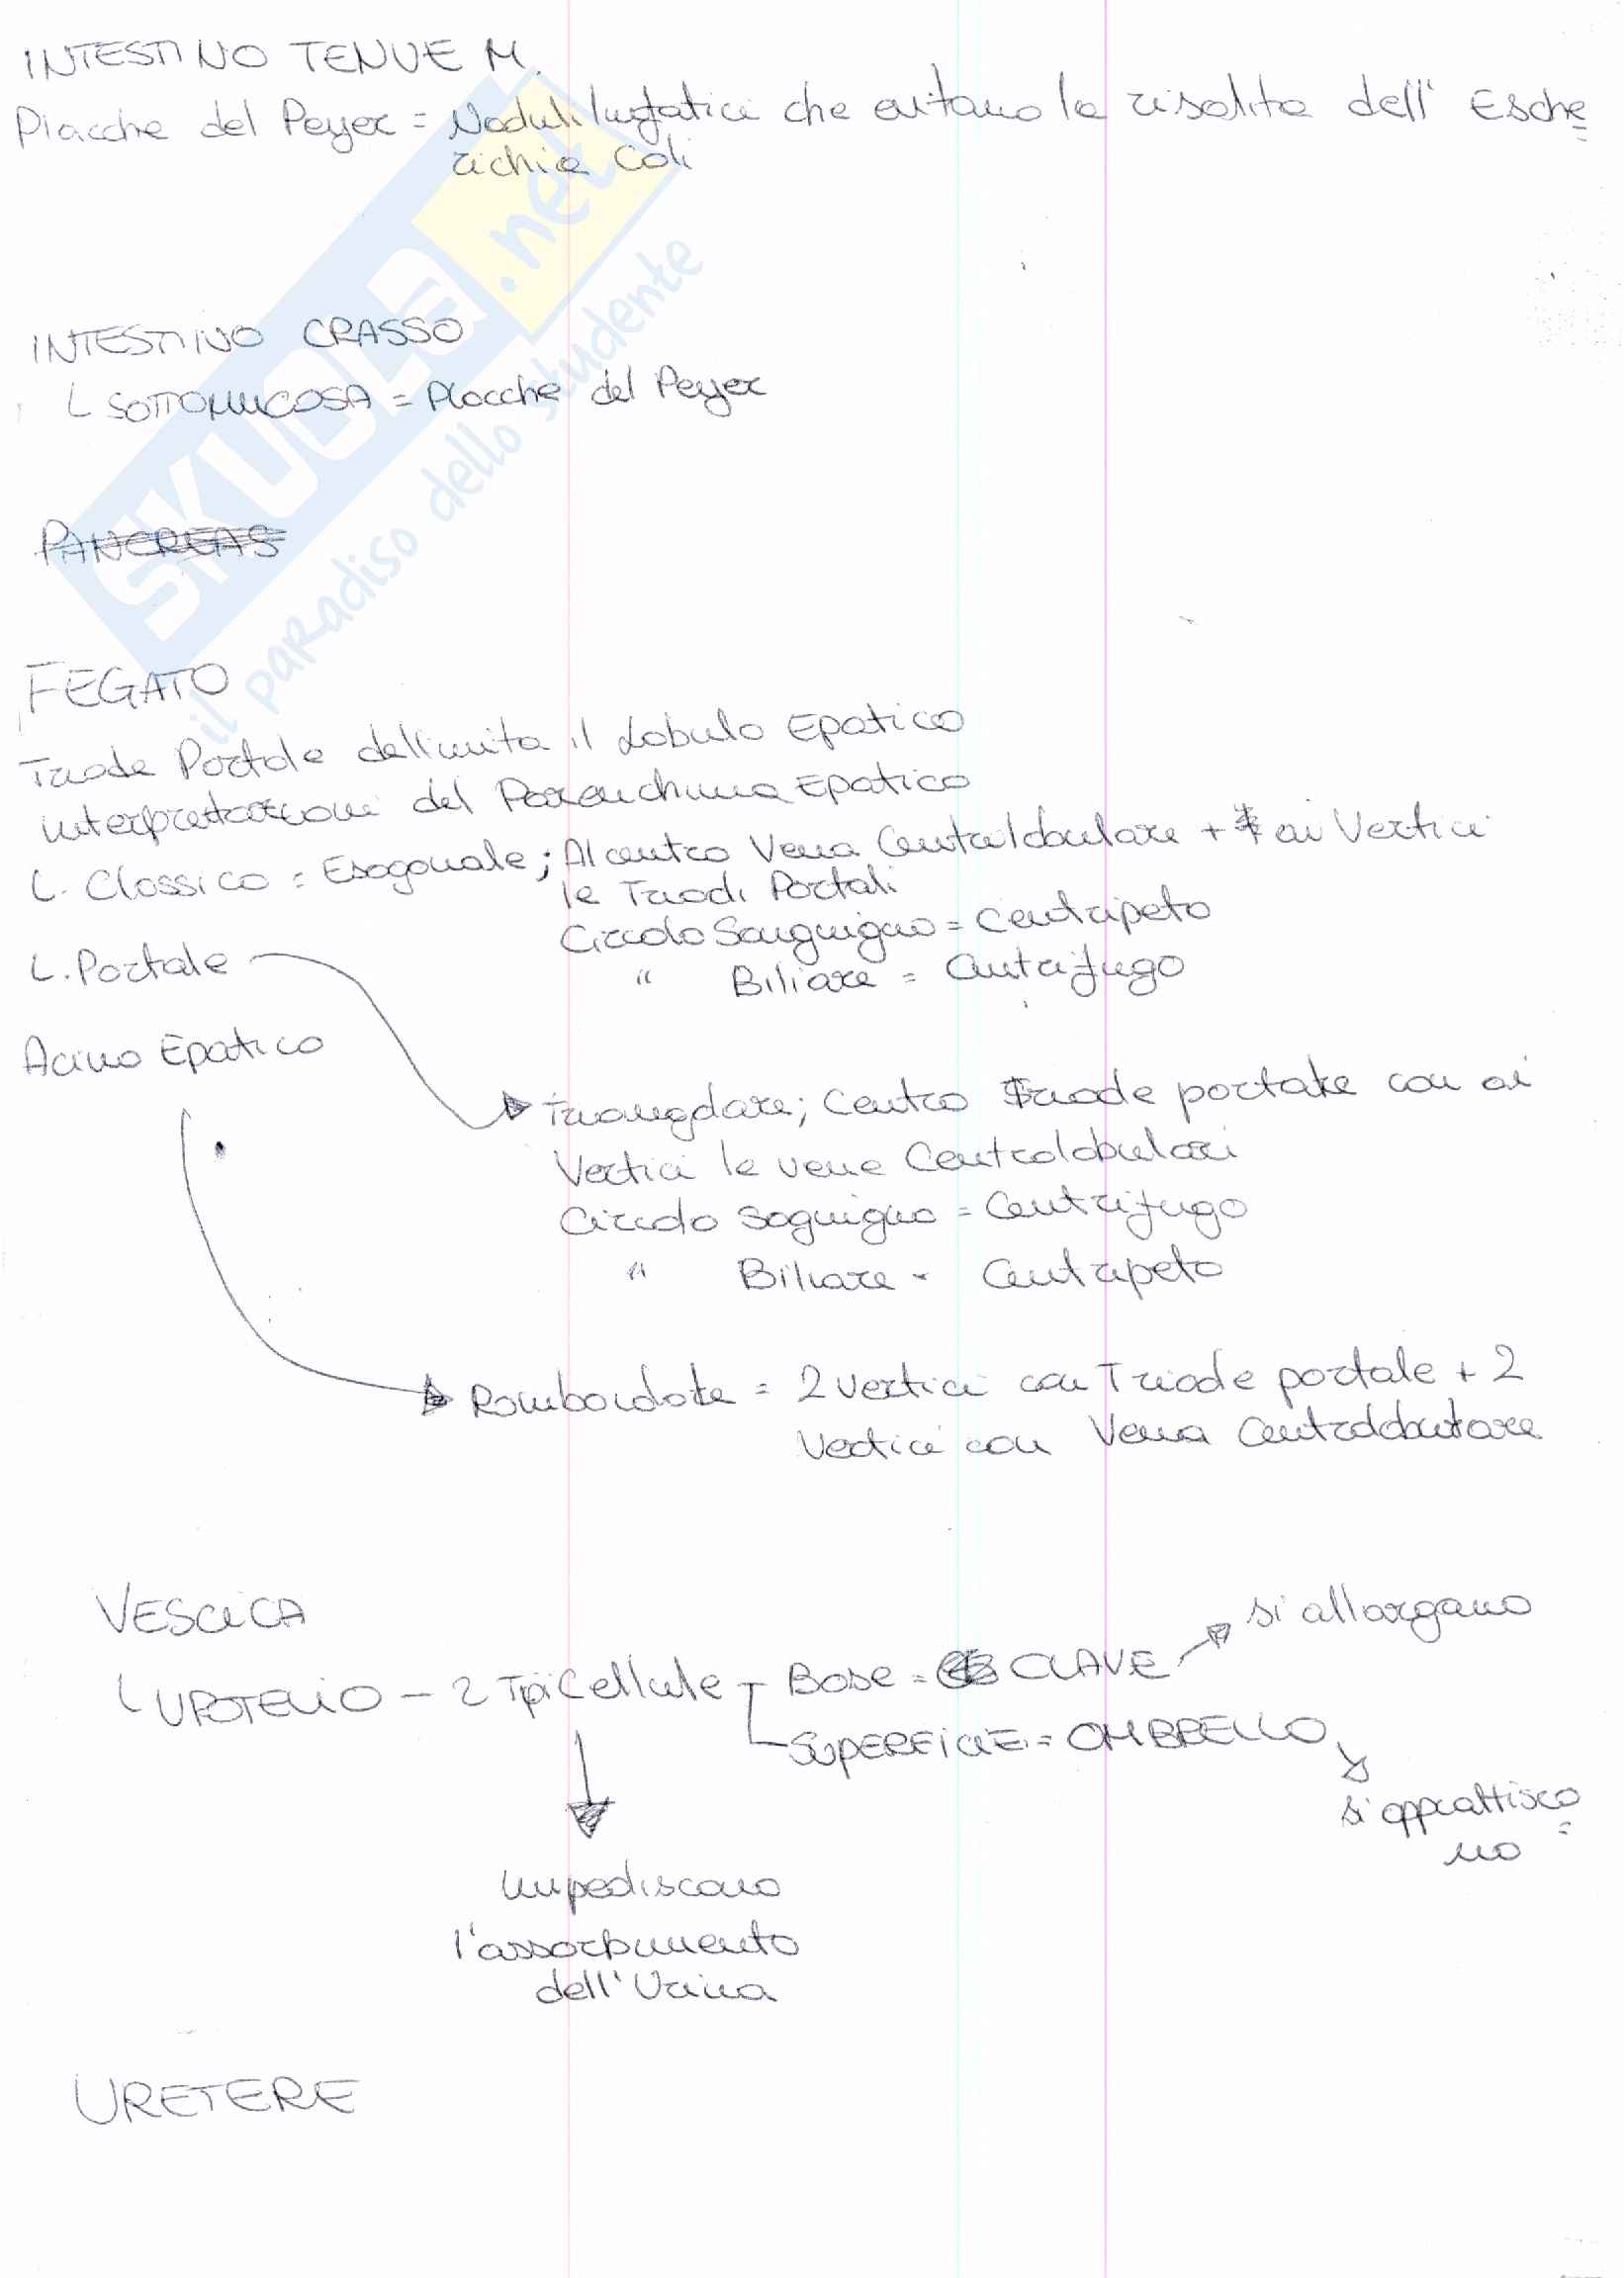 INTESTINO TENUE M.
Placche del Peyer = Noduli linfatici che evitano la risalita dell' Esche
richia Coli
INTESTINO CRASSO
L SOTTOMUCOSA = Placche del Peyer
PANCREAS
FEGATO
Triade Portale delimita il Lobulo Epatico
interpretazioni del Parenchima Epatico
L. Classico = Esagonale; Al centro Vena Centrolobulare + ai Vertici
le Triadi Portali
Circolo Sanguigno = Centripeto
" Biliare = Centrifugo
L. Portale
Acino Epatico
Triangolare; Centro Triade portale con ai
Vertici le vene Centrolobulari
Circolo Saguigno = Centrifugo
" Biliare = Centripeto
Romboidale = 2 vertici con Triade portale + 2
Vertici con Vena Centrolobulare
VESCICA
si allargano
L UROTELIO - 2 Tipi Cellule Base = CLAVE
SUPERFICIE = OMBRELLO
si appiattisco
no
Impediscono
l'assorbimento
dell'Urina
URETERE
SKUOLA.net
il paradiso dello studente